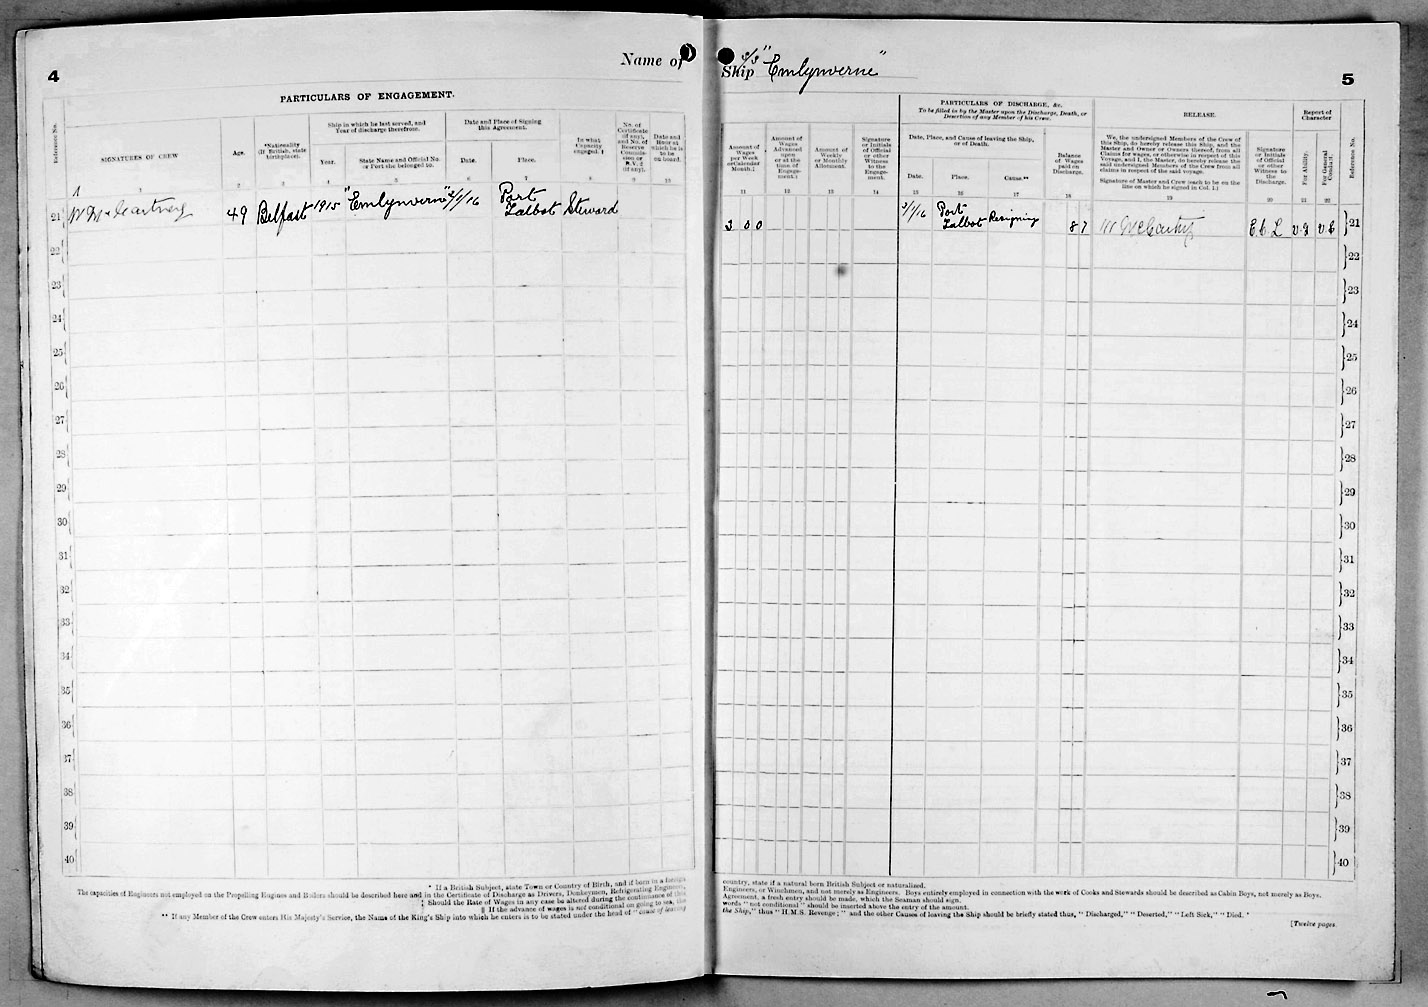 4
Name of
PARTICULARS OF ENGAGEMENT.
Reference No.
SIGNATURES OF CREW
Age.
*Nationality
(If British, state
birthplace).
Ship in which he last served, and
Year of discharge therefrom.
Year.
State Name and Official No.
or Port she belonged to.
Date and Place of Signing
this Agreement.
Date.
Place.
In what
Capacity
engaged. †
No. of
Certificate
(if any),
and No. of
Reserve
Commis-
sion or
R.V. 2
(if any).
Date and
Hour at
which he is
to be
on board.
1 2 3 4 5 6 7 8 9 10
1
21 W McCartney 49 Belfast 1915 "Emlynverne" 2/1/16 Port Talbot Steward
22
23
24
25
26
27
28
29
30
31
32
33
34
35
36
37
38
39
40
* If a British Subject, state Town or Country of Birth, and if born in a foreign
The capacities of Engineers not employed on the Propelling Engines and Boilers should be described here and in the Certificate of Discharge as Drivers, Donkeymen, Refrigerating Engineers,
‡ Should the Rate of Wages in any case be altered during the continuance of this
§ If the advance of wages is not conditional on going to sea, the
** If any Member of the Crew enters His Majesty's Service, the Name of the King's Ship into which he enters is to be stated under the head of "cause of leaving
S/S "Emlynverne"
Ship
5
Amount of
Wages
per Week
or Calendar
Month.‡
Amount of
Wages
Advanced
upon
or at the
time of
Engage-
ment.§
Amount of
Weekly
or Monthly
Allotment.
Signature
or Initials
of Official
or other
Witness
to the
Engage-
ment.
PARTICULARS OF DISCHARGE, &c.
To be filled in by the Master upon the Discharge, Death, or
Desertion of any Member of his Crew.
Date, Place, and Cause of leaving the Ship,
or of Death.
Date.
Place.
Cause.**
Balance
of Wages
paid on
Discharge.
RELEASE.
We, the undersigned Members of the Crew of
this Ship, do hereby release this Ship, and the
Master and Owner or Owners thereof, from all
Claims for wages, or otherwise in respect of this
Voyage, and I, the Master, do hereby release the
said undersigned Members of the Crew from all
claims in respect of the said voyage.
Signature of Master and Crew (each to be on the
line on which he signed in Col. 1.)
Signature
or Initials
of Official
or other
Witness to
the
Discharge.
Report of
Character
For Ability.
For General
Conduct.
Reference No.
11 12 13 14 15 16 17 18 19 20 21 22
3 0 0 3/1/16 Port Talbot Resigning 8 7 W McCartney E.C.L V.G V.G 21
22
23
24
25
26
27
28
29
30
31
32
33
34
35
36
37
38
39
40
country, state if a natural born British Subject or naturalized.
Engineers, or Winchmen, and not merely as Engineers. Boys entirely employed in connection with the work of Cooks and Stewards should be described as Cabin Boys, not merely as Boys.
Agreement, a fresh entry should be made, which the Seaman should sign.
words "not conditional" should be inserted above the entry of the amount.
the Ship," thus "H.M.S. Revenge;" and the other Causes of leaving the Ship should be briefly stated thus, "Discharged," "Deserted," "Left Sick," "Died."
[Twelve pages.